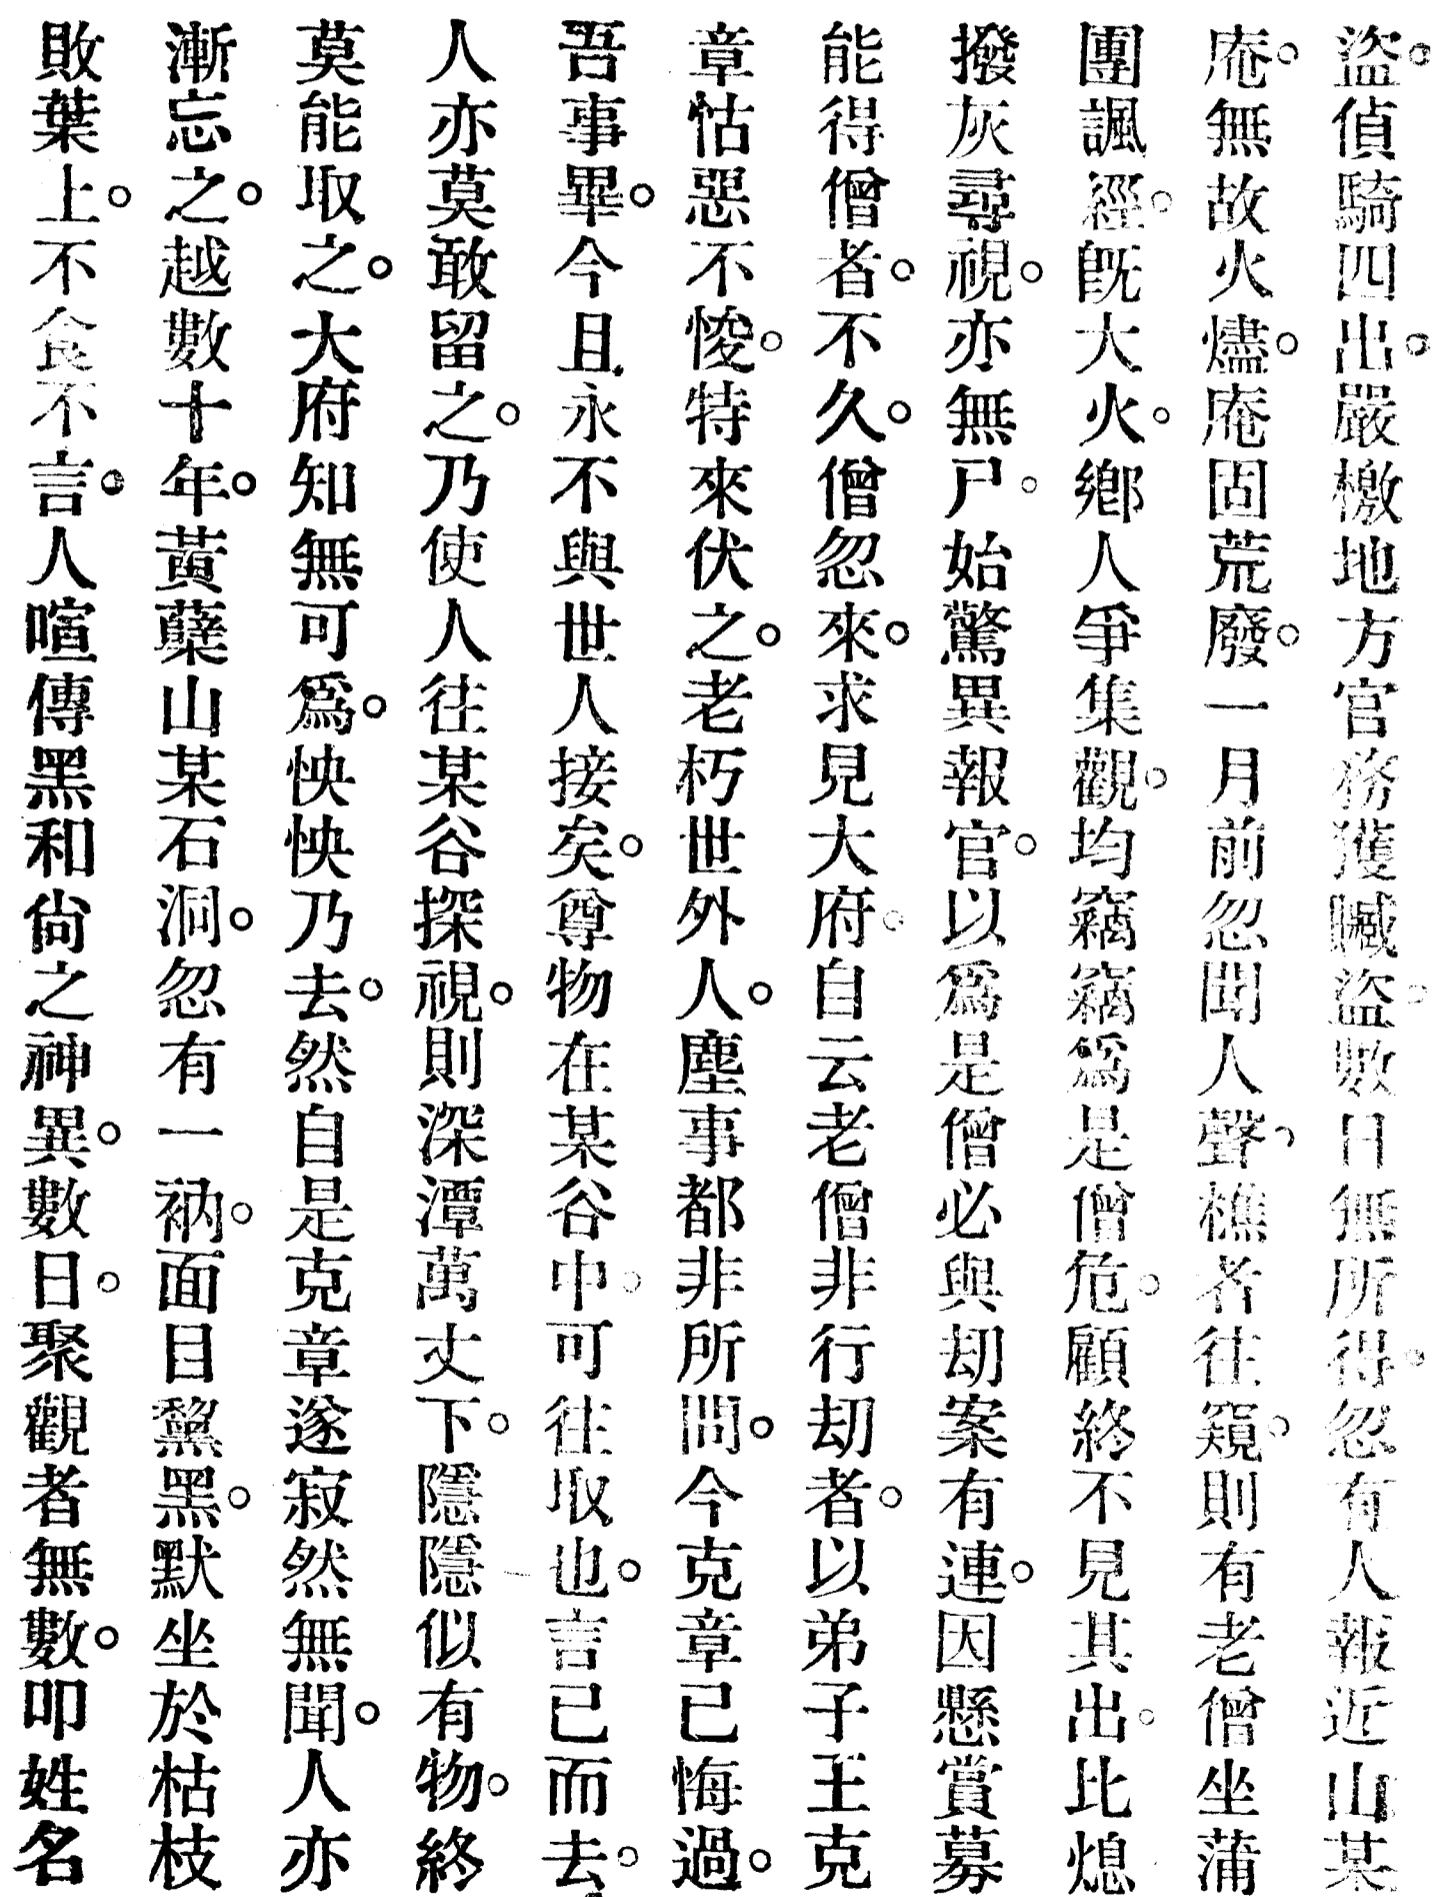 盜。偵騎四出。嚴檄地方官務獲贓盜。數日無所得。忽有人報近山某
庵。無故火燼。庵固荒廢。一月前忽聞人聲。樵者往窺。則有老僧坐蒲
團諷經。旣大火。鄉人爭集觀。均竊竊爲是僧危。顧終不見其出。比熄
撥灰尋視。亦無尸。始驚異報官。以爲是僧必與劫案有連。因懸賞募
能得僧者。不久。僧忽來。求見大府。自云老僧非行劫者。以弟子王克
章怙惡不悛。特來伏之。老朽世外人。塵事都非所問。今克章已悔過。
吾事畢。今且永不與世人接矣。尊物在某谷中。可往取也。言已而去。
人亦莫敢留之。乃使人往某谷探視。則深潭萬丈下。隱隱似有物。終
莫能取之。大府知無可爲。怏怏乃去。然自是克章遂寂然無聞。人亦
漸忘之。越數十年。黃蘗山某石洞。忽有一衲。面目黧黑。默坐於枯枝
敗葉上。不食不言。人喧傳黑和尙之神異。數日。聚觀者無數。叩姓名